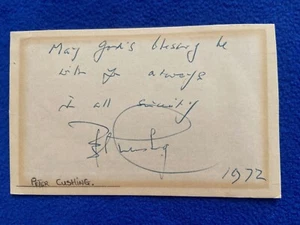 May God's blessing be
with you always
in all sincerity
Peter Cushing
1972
PETER CUSHING.